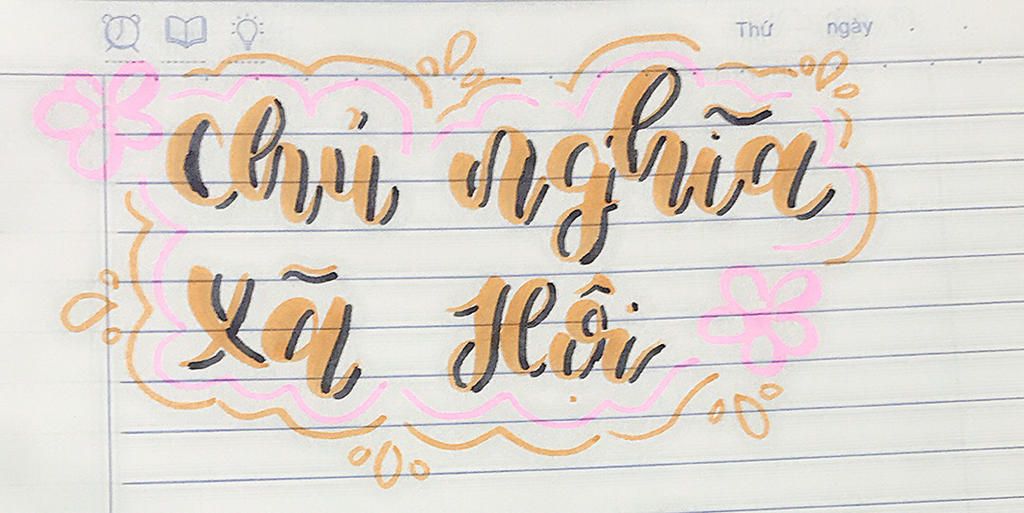 Thứ ngày
Chủ nghĩa
Xã Hội